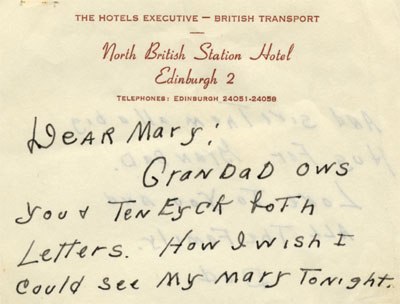 THE HOTELS EXECUTIVE — BRITISH TRANSPORT
North British Station Hotel
Edinburgh 2
TELEPHONES: EDINBURGH 24051-24058
DEAR MARY:
GRANDAD OWS
YOU & TENEYCK BOTH
LETTERS. HOW I WISH I
COULD SEE MY MARY TONIGHT.